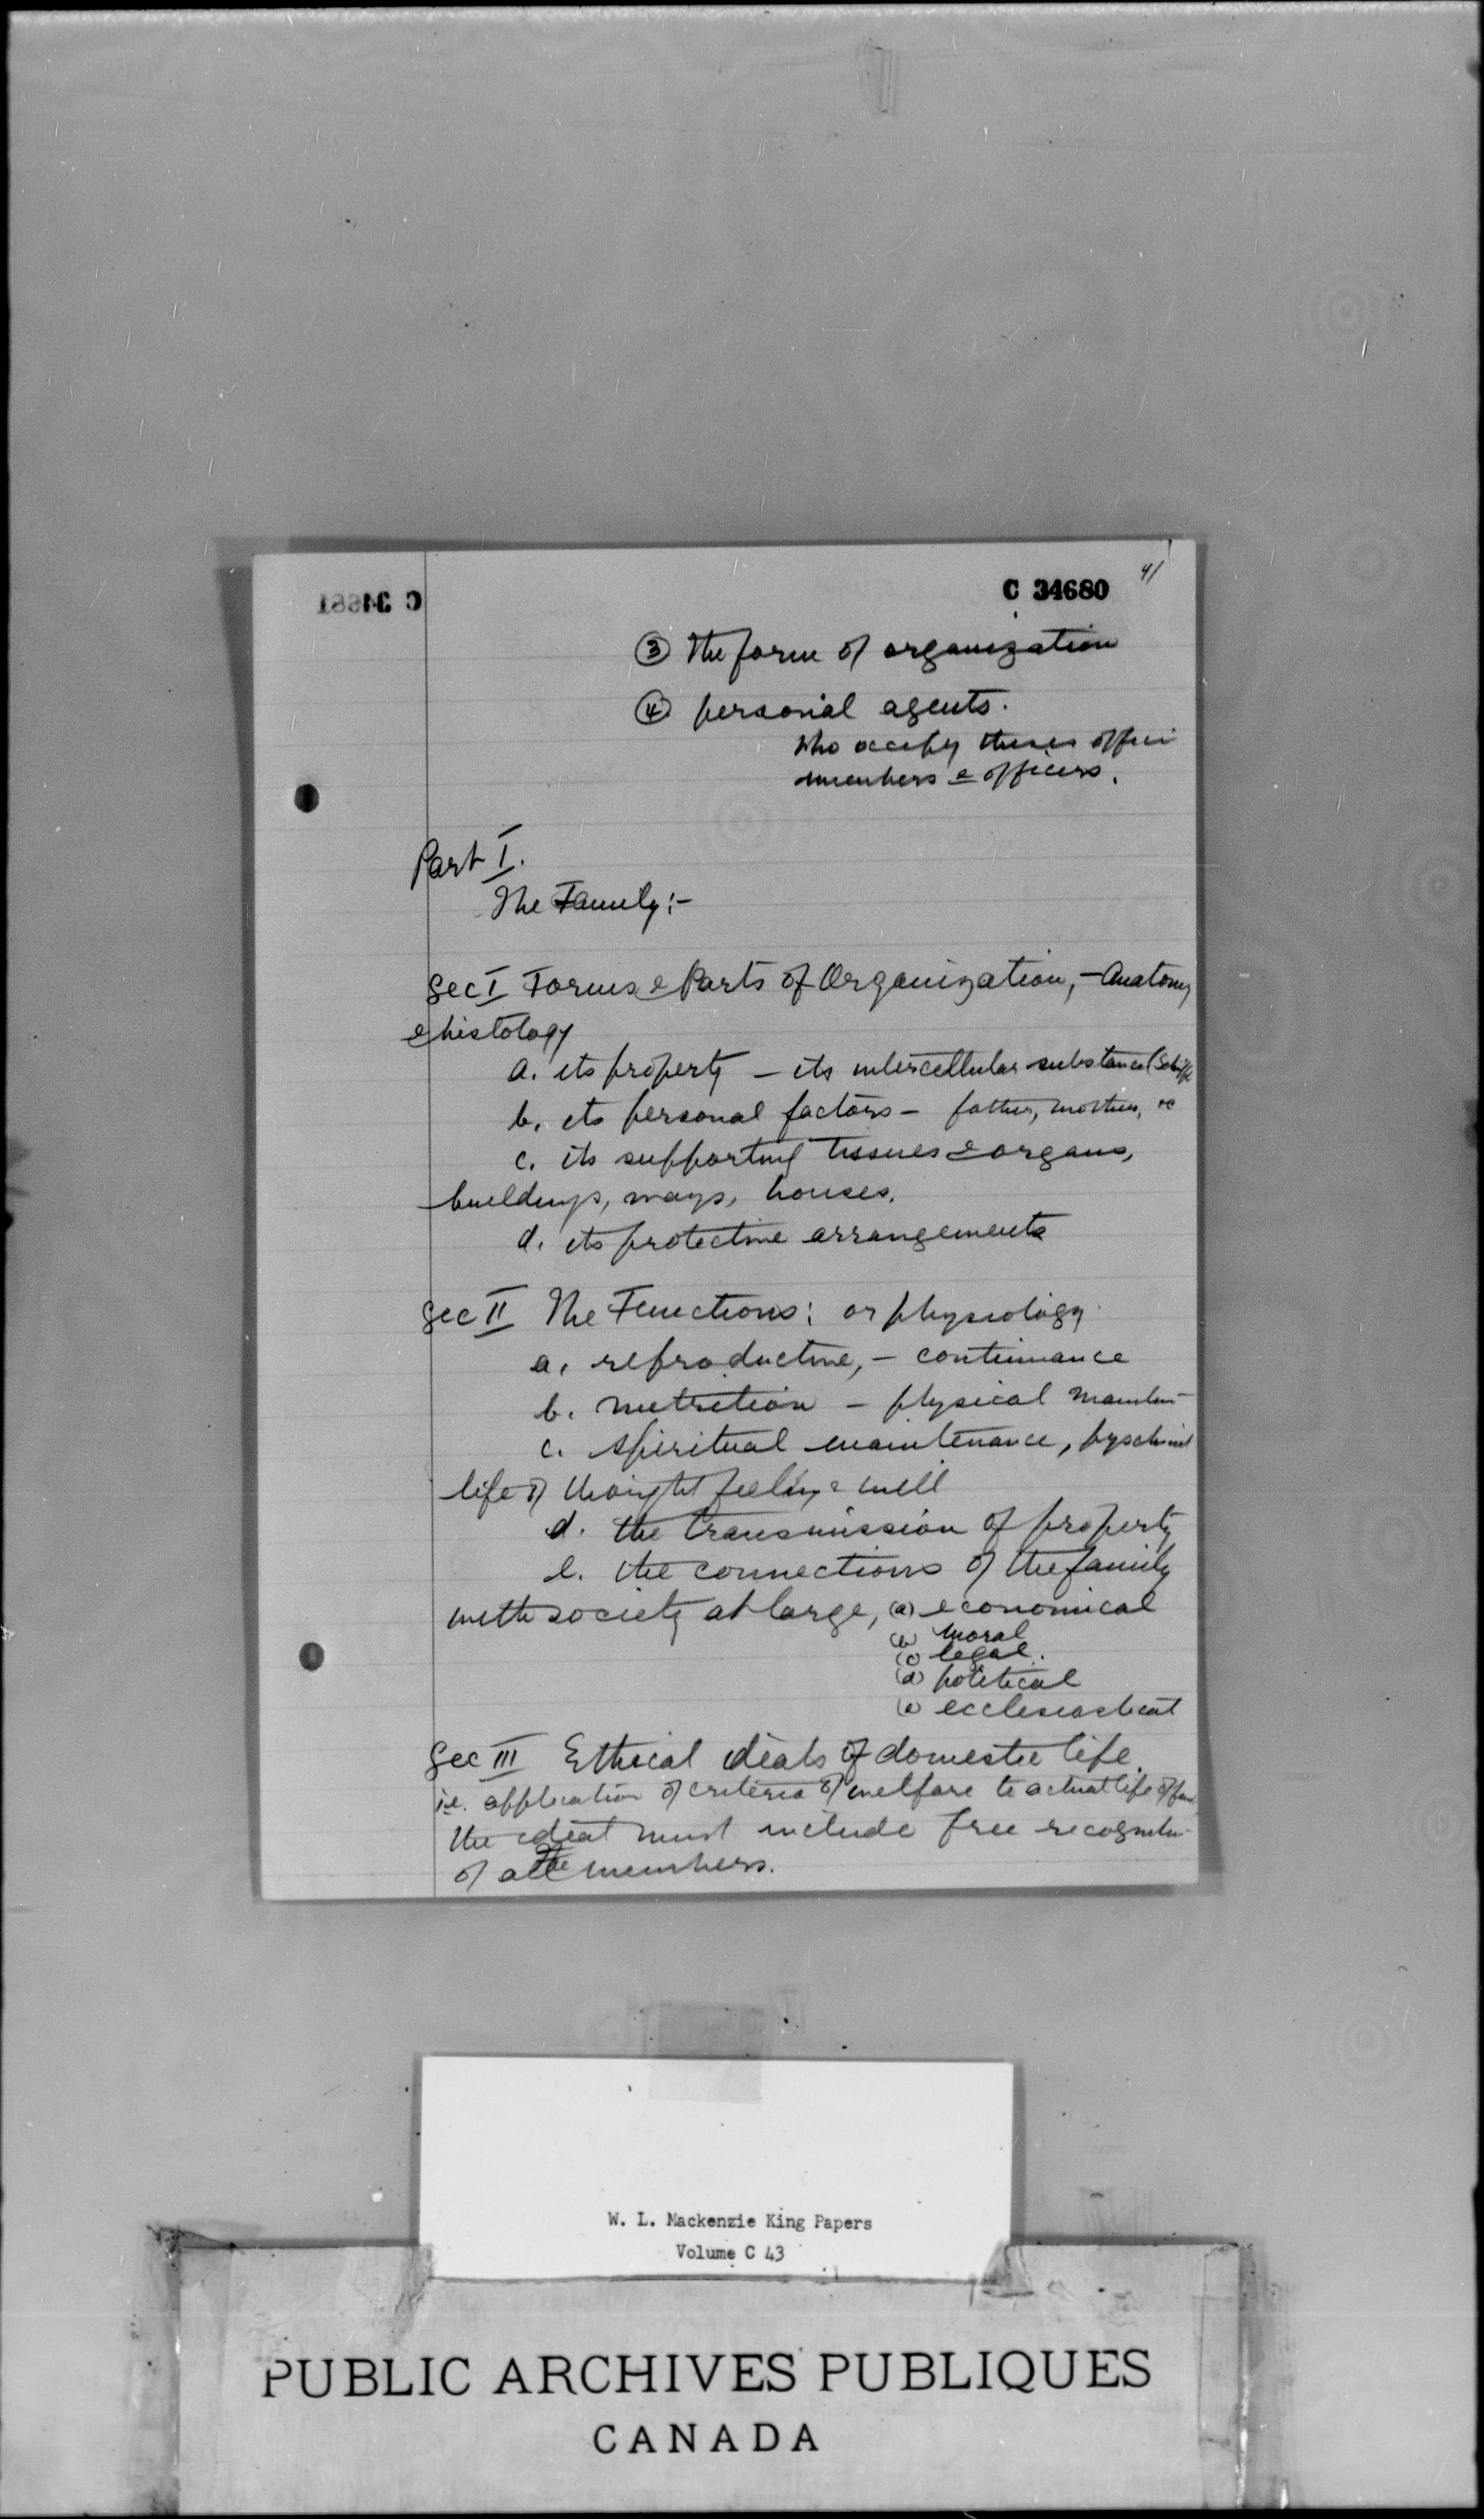 41
C 34680
C 34681
③ The form of organization
④ personal agents.
who occupy these
members & officers.
Part I.
The Family:-
Sec I Forms & Parts of Organization, - Anatomy
& histology
a. its property - its intercellular substance
b. its personal factors - father, mother, &c
c. its supporting tissues & organs,
buildings, ways, houses.
d. its protective arrangements
Sec II The Functions: or physiology
a. reproductive, - continuance
b. nutrition - physical
c. spiritual maintenance,
life of thought feeling & will
d. the transmission of property
e. the connections of the family
with society at large, (a) economical
(b) moral
(c) legal.
(d) political
(e) ecclesiastical
Sec III Ethical ideals of domestic life.
i.e. application of criteria of welfare to actual life of
the ideal must include free
of all the members.
W. L. Mackenzie King Papers
Volume C 43
PUBLIC ARCHIVES PUBLIQUES
CANADA